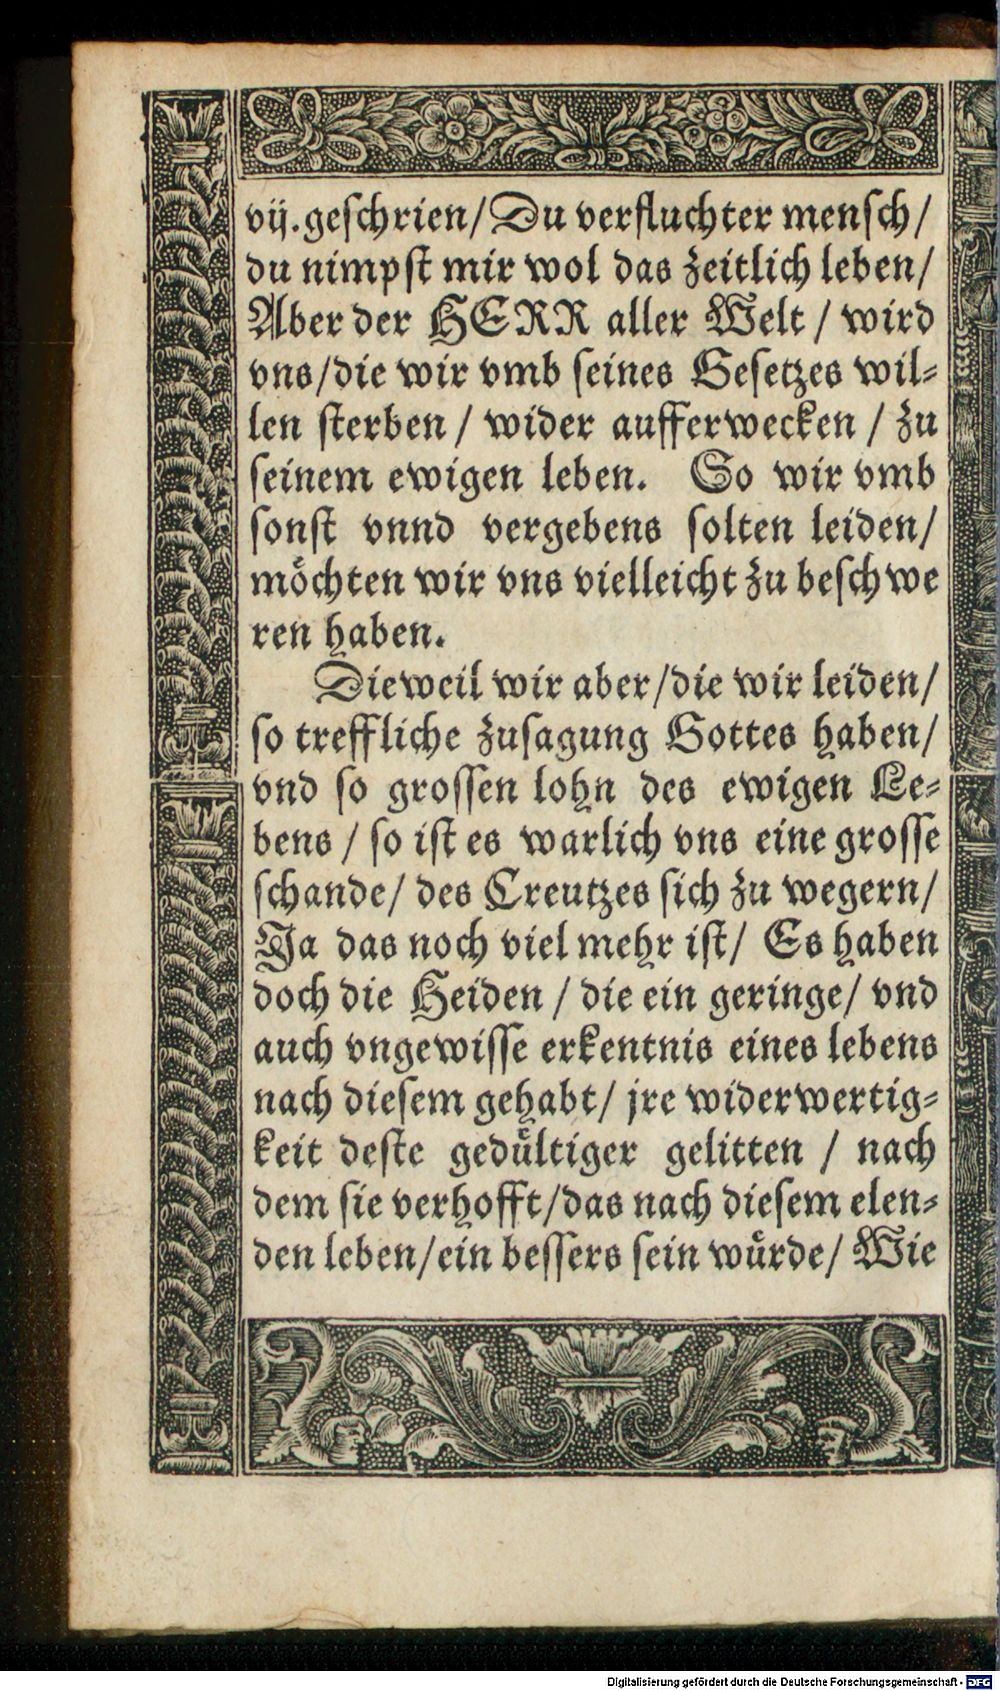 vij. geschrien/ Du verfluchter mensch/
du nimpst mir wol das zeitlich leben/
Aber der HERR aller Welt / wird
vns/die wir vmb seines Gesetzes wil-
len sterben / wider aufferwecken / zu
seinem ewigen leben. So wir vmb
sonst vnnd vergebens solten leiden/
möchten wir vns vielleicht zu beschwe
ren haben.
Dieweil wir aber/die wir leiden/
so treffliche zusagung Gottes haben/
vnd so grossen lohn des ewigen Le-
bens / so ist es warlich vns eine grosse
schande/ des Creutzes sich zu wegern/
Ja das noch viel mehr ist/ Es haben
doch die Heiden / die ein geringe/ vnd
auch vngewisse erkentnis eines lebens
nach diesem gehabt/ jre widerwertig-
keit deste gedültiger gelitten / nach
dem sie verhofft/das nach diesem elen-
den leben/ein bessers sein würde/ Wie
Digitalisierung gefördert durch die Deutsche Forschungsgemeinschaft - DFG